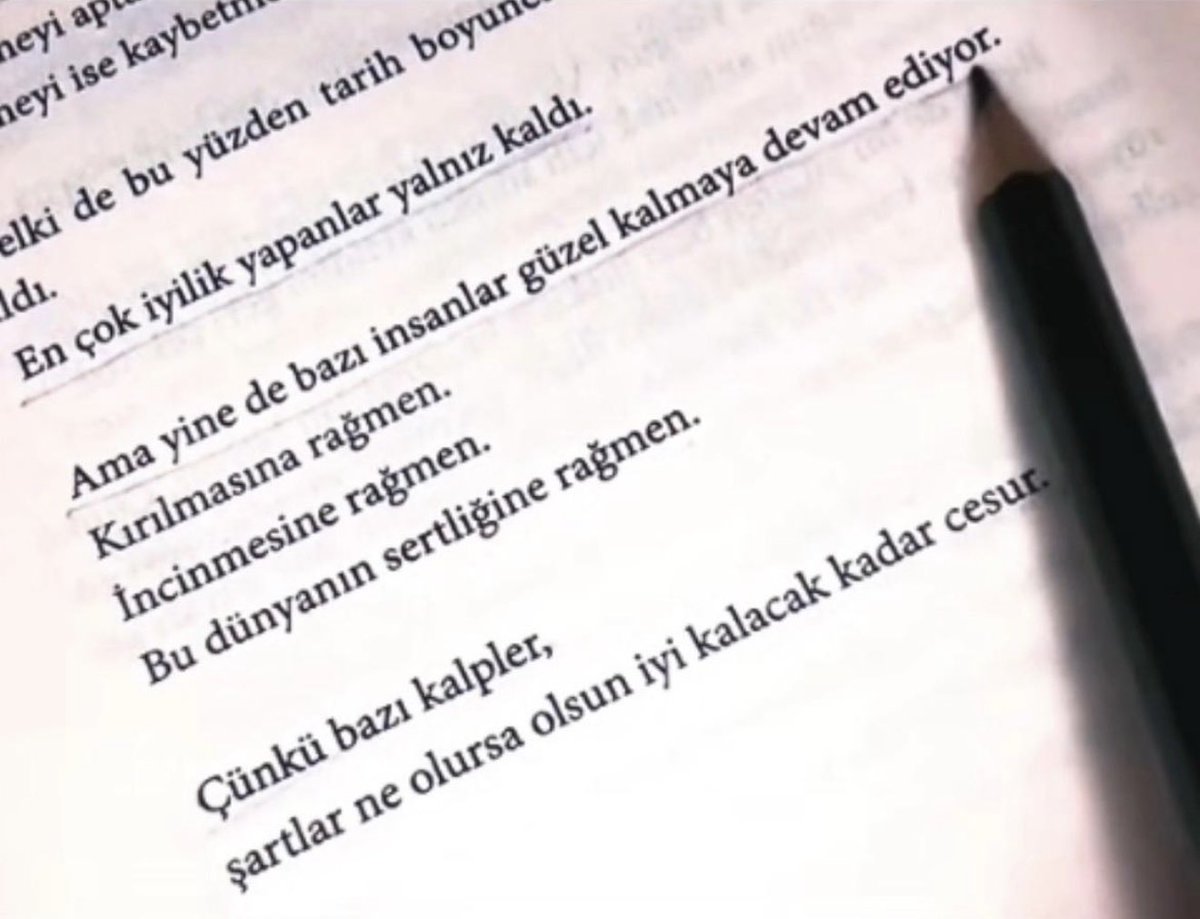 ise kaybetm
de bu yüzden tarih boyunc
ldı.
En çok iyilik yapanlar yalnız kaldı.
Ama yine de bazı insanlar güzel kalmaya devam ediyor.
Kırılmasına rağmen.
İncinmesine rağmen.
Bu dünyanın sertliğine rağmen.
Çünkü bazı kalpler,
şartlar ne olursa olsun iyi kalacak kadar cesur.